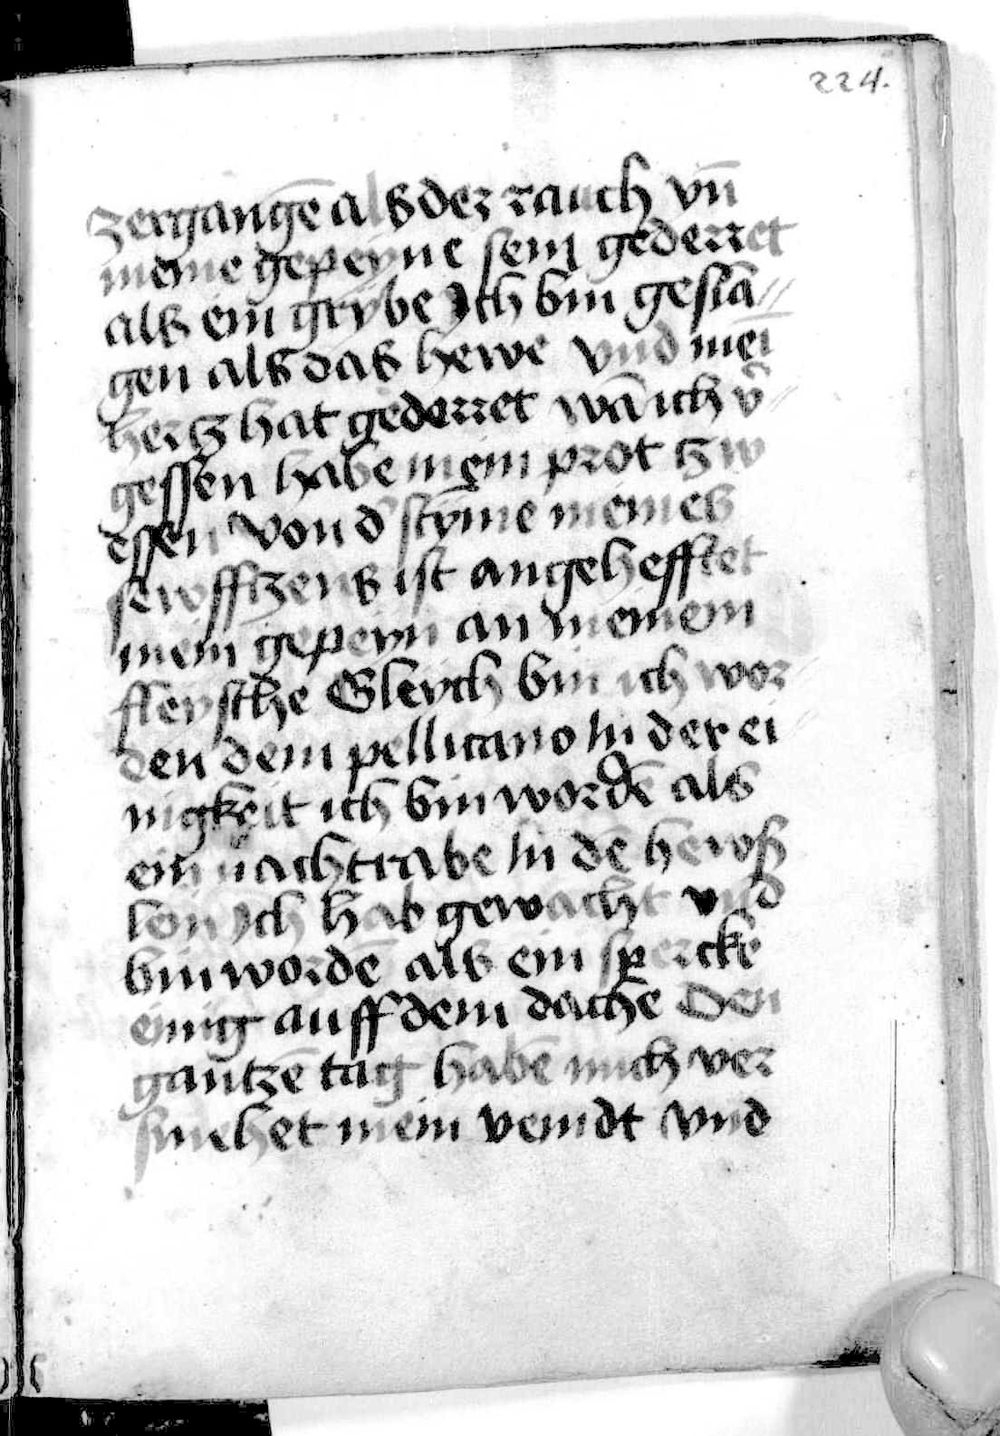 224.
zergangē als der rauch vn̄
meine gepeyne sein gederret
als ein grybe Ich bin geslā//
gen als das hewe vnd mei
hertz hat gederret wā ich v̄
gessen habe mein prot tzw
essen von d̓ stym̄e meines
sewfftzens ist angehefftet
mein gepeyn an meinem
fleysche Gleych bin ich wor
den dem pellicano In der ei
nigkeit ich bin wordē als
ein nachtrabe In dē hewß
lein Ich hab gewacht vnd
bin wordē als ein spercke
einig auff dem dache Den
gantzē tag habē mich ver
smehet mein veindt vnd